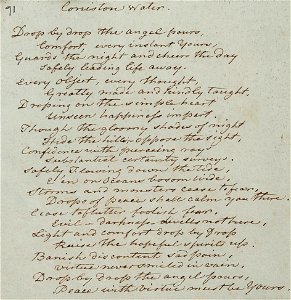 91
Coniston Water.
Drop by drop the angel pours,
Comfort, every instant yours,
Guards the night and cheers the day
Safely leading life away.
Every object, every thought,
Greatly made and kindly taught,
Droping on the simple heart
Unseen happiness impart.
Though the gloomy shades of night
Hide the hills, oppose the sight,
Confidence with piercing rays
Substantial certainty surveys.
Safely flowing down the tide,
E'en on oceans bosom wide,
Storms and monsters cease to fear,
Drops of peace shall calm you there.
Cease to flutter foolish fear,
Evil darkness dwells not here,
Light and comfort drop by drop
Raise the hopeful spirits up.
Banish discontent and pain,
Virtue never smiled in vain,
Drop by drop the angel pours,
Peace with virtue must be yours.